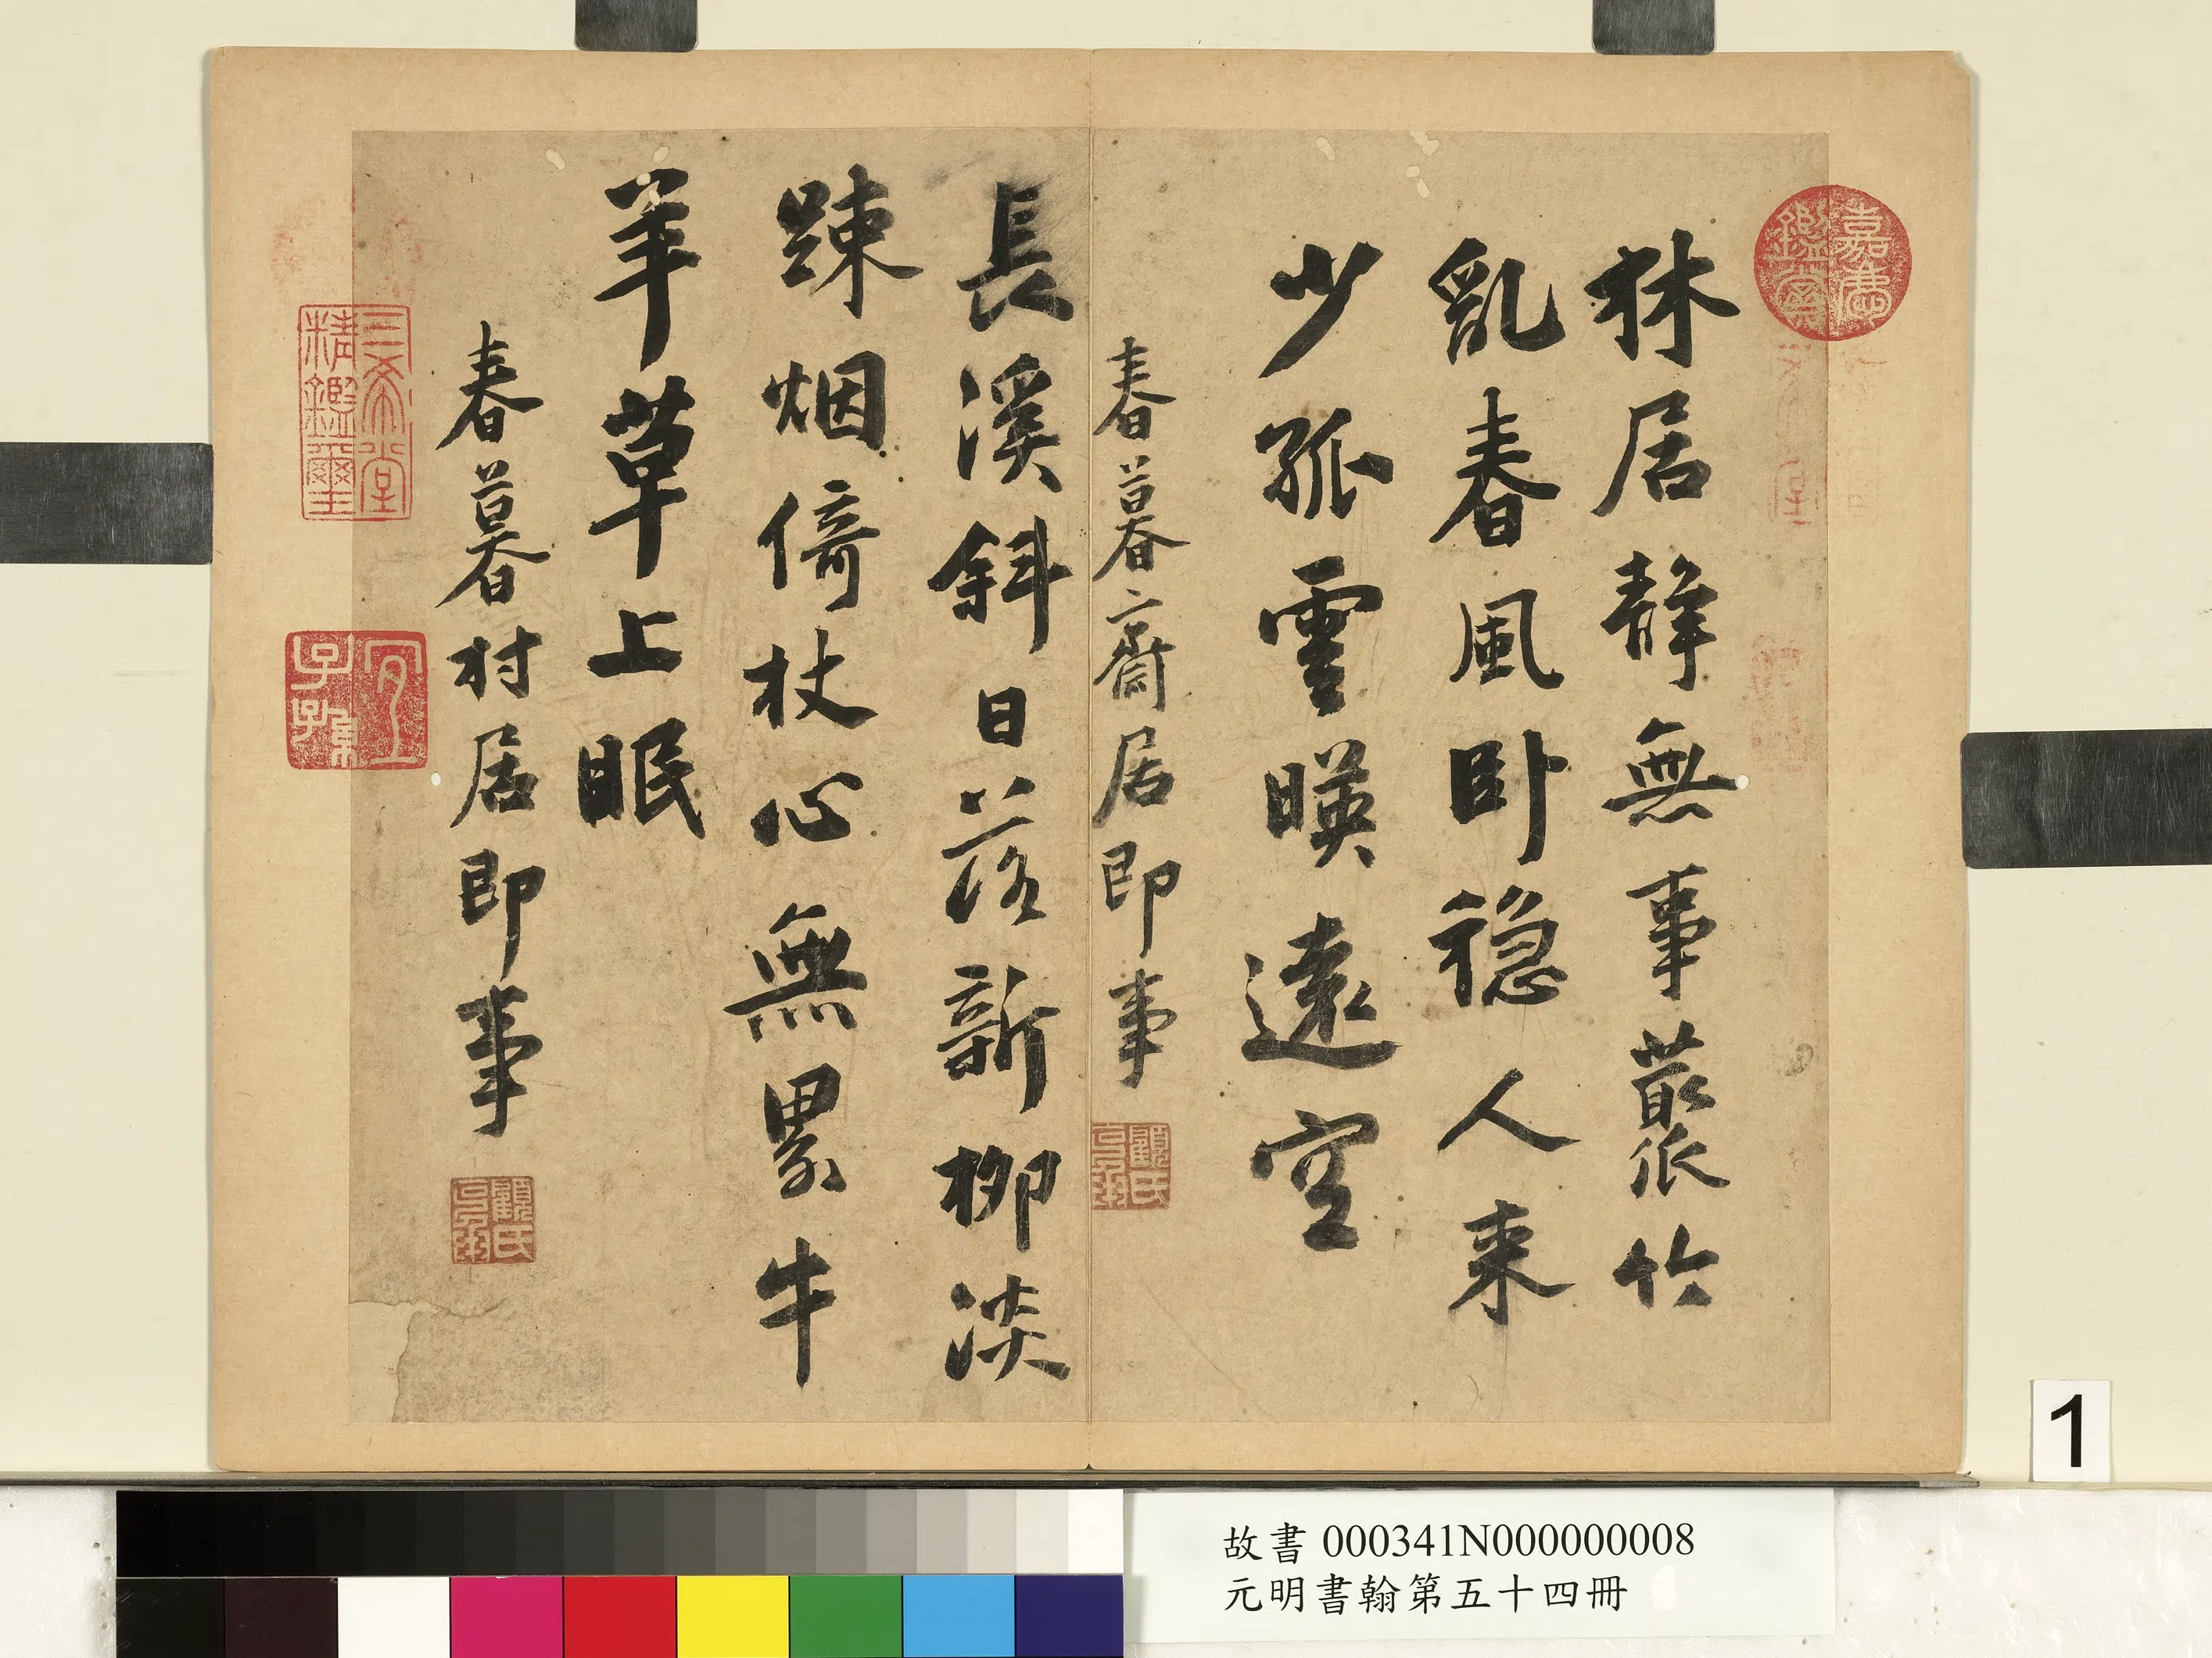 林居靜無事叢竹
亂春風卧穩人來
少孤雲暎遠空
春暮齋居即事
顧氏
長溪斜日落新柳淡
踈烟倚杖心無累牛
羊草上眠
春暮村居即事
顧氏
嘉慶鑑賞
三希堂
精鑑璽
宜
子孫
1
故書 000341N000000008
元明書翰第五十四冊